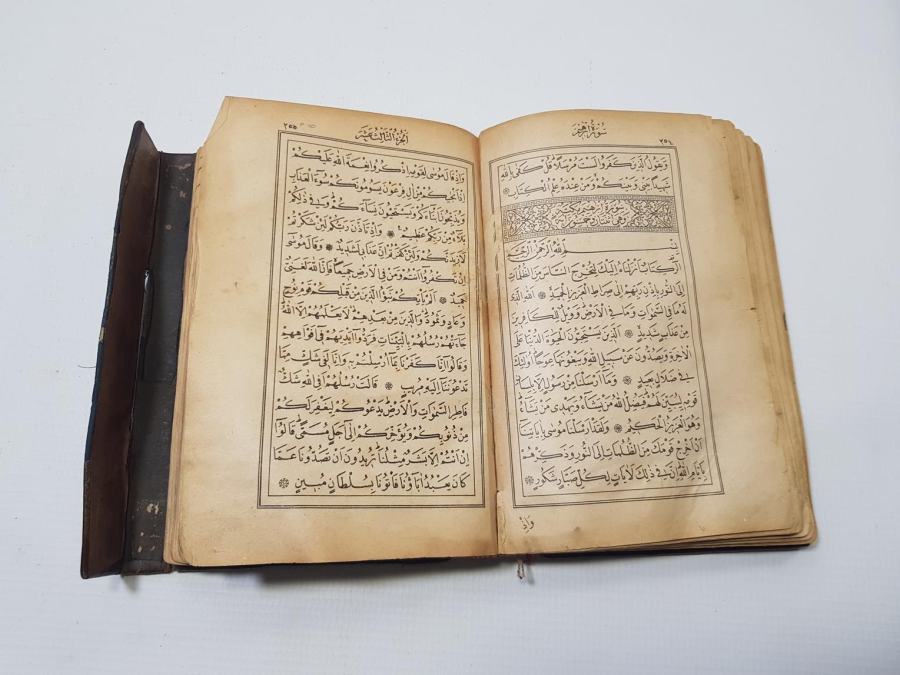 سُورَةُ اِبْرٰهِيمَ
٢٥٤
وَيَقُولُ الَّذِينَ كَفَرُوا لَسْتَ مُرْسَلًا قُلْ كَفٰى بِاللهِ
شَهِيدًا بَيْنِي وَبَيْنَكُمْ وَمَنْ عِنْدَهُ عِلْمُ الْكِتَابِ ❁
سورة ابرهيم مكية
وهي وخمسون
بِسْمِ اللهِ الرَّحْمٰنِ الرَّحِيمِ
الٓرٰ كِتَابٌ اَنْزَلْنَاهُ اِلَيْكَ لِتُخْرِجَ النَّاسَ مِنَ الظُّلُمَاتِ
اِلَى النُّورِ بِاِذْنِ رَبِّهِمْ اِلٰى صِرَاطِ الْعَزِيزِ الْحَمِيدِ ❁ اَللهِ الَّذِي
لَهُ مَا فِي السَّمٰوَاتِ وَمَا فِي الْاَرْضِ وَوَيْلٌ لِلْكَافِرِينَ
مِنْ عَذَابٍ شَدِيدٍ ❁ اَلَّذِينَ يَسْتَحِبُّونَ الْحَيٰوةَ الدُّنْيَا عَلَى
الْاٰخِرَةِ وَيَصُدُّونَ عَنْ سَبِيلِ اللهِ وَيَبْغُونَهَا عِوَجًا اُولٰئِكَ
فِي ضَلَالٍ بَعِيدٍ ❁ وَمَا اَرْسَلْنَا مِنْ رَسُولٍ اِلَّا بِلِسَانِ
قَوْمِهِ لِيُبَيِّنَ لَهُمْ فَيُضِلُّ اللهُ مَنْ يَشَاءُ وَيَهْدِي مَنْ يَشَاءُ
وَهُوَ الْعَزِيزُ الْحَكِيمُ ❁ وَلَقَدْ اَرْسَلْنَا مُوسٰى بِاٰيَاتِنَا
اَنْ اَخْرِجْ قَوْمَكَ مِنَ الظُّلُمَاتِ اِلَى النُّورِ وَذَكِّرْهُمْ
بِاَيَّامِ اللهِ اِنَّ فِي ذٰلِكَ لَاٰيَاتٍ لِكُلِّ صَبَّارٍ شَكُورٍ ❁
وَاِذْ
اَلْجُزْءُ الثَّالِثَ عَشَرَ
٢٥٥
وَاِذْ قَالَ مُوسٰى لِقَوْمِهِ اذْكُرُوا نِعْمَةَ اللهِ عَلَيْكُمْ
اِذْ اَنْجٰيكُمْ مِنْ اٰلِ فِرْعَوْنَ يَسُومُونَكُمْ سُوءَ الْعَذَابِ
وَيُذَبِّحُونَ اَبْنَاءَكُمْ وَيَسْتَحْيُونَ نِسَاءَكُمْ وَفِي ذٰلِكُمْ
بَلَاءٌ مِنْ رَبِّكُمْ عَظِيمٌ ❁ وَاِذْ تَاَذَّنَ رَبُّكُمْ لَئِنْ شَكَرْتُمْ
لَاَزِيدَنَّكُمْ وَلَئِنْ كَفَرْتُمْ اِنَّ عَذَابِي لَشَدِيدٌ ❁ وَقَالَ مُوسٰى
اِنْ تَكْفُرُوا اَنْتُمْ وَمَنْ فِي الْاَرْضِ جَمِيعًا فَاِنَّ اللهَ لَغَنِيٌّ
حَمِيدٌ ❁ اَلَمْ يَاْتِكُمْ نَبَؤُا الَّذِينَ مِنْ قَبْلِكُمْ قَوْمِ نُوحٍ
وَعَادٍ وَثَمُودَ وَالَّذِينَ مِنْ بَعْدِهِمْ لَا يَعْلَمُهُمْ اِلَّا اللهُ
جَاءَتْهُمْ رُسُلُهُمْ بِالْبَيِّنَاتِ فَرَدُّوا اَيْدِيَهُمْ فِي اَفْوَاهِهِمْ
وَقَالُوا اِنَّا كَفَرْنَا بِمَا اُرْسِلْتُمْ بِهِ وَاِنَّا لَفِي شَكٍّ مِمَّا
تَدْعُونَنَا اِلَيْهِ مُرِيبٍ ❁ قَالَتْ رُسُلُهُمْ اَفِي اللهِ شَكٌّ
فَاطِرِ السَّمٰوَاتِ وَالْاَرْضِ يَدْعُوكُمْ لِيَغْفِرَ لَكُمْ
مِنْ ذُنُوبِكُمْ وَيُؤَخِّرَكُمْ اِلٰى اَجَلٍ مُسَمًّى قَالُوا
اِنْ اَنْتُمْ اِلَّا بَشَرٌ مِثْلُنَا تُرِيدُونَ اَنْ تَصُدُّونَا عَمَّا
كَانَ يَعْبُدُ اٰبَاؤُنَا فَاْتُونَا بِسُلْطَانٍ مُبِينٍ ❁